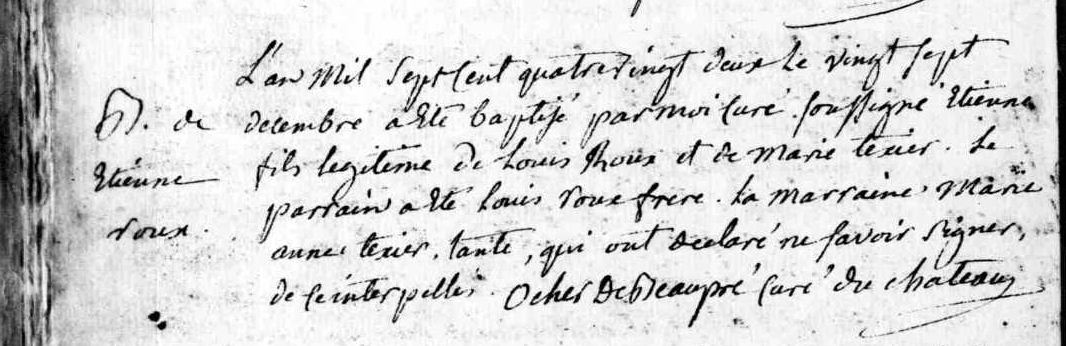 L'an Mil Sept Cent quatre Vingt deux Le vingt sept
B. de decembre a Eté baptisé par moi Curé soussigné Etienne
Etienne fils legitime de Louis Roux et de Marie texier. Le
roux. parrain a Eté Louis roux frere. La marraine Marie
anne texier, tante, qui ont declaré ne savoir signer,
de ce interpellés. Ocher DeBeaupré Curé du chateau